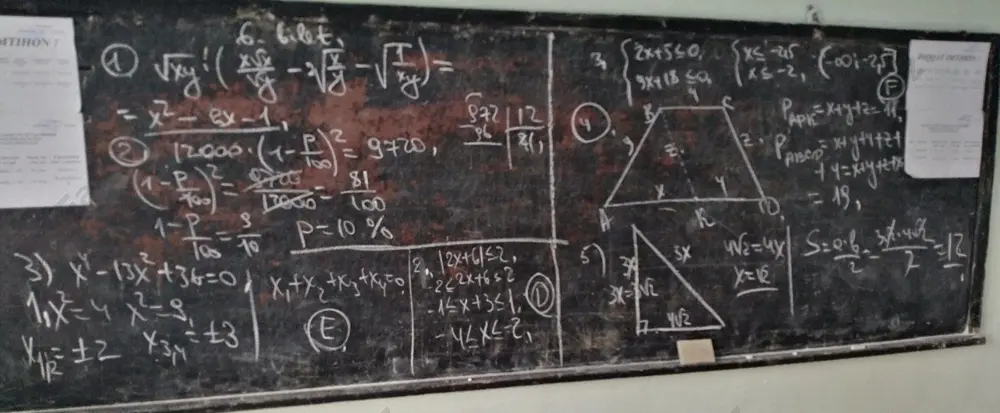 6-bilet,
① √xy : (x√x/√y - 2√x/y - √1/xy) =
= x² - 2x - 1,
② 12000·(1 - P/100)² = 9720,
972 | 12
96 | 81,
(1 - P/100)² = 9720/12000 = 81/100
1 - P/100 = 9/10
P = 10 %
3) x⁴ - 13x² + 36 = 0,
1, x² = 4 x² = 9,
x₁,₂ = ±2 x₃,₄ = ±3
x₁ + x₂ + x₃ + x₄ = 0,
E,
2, |2x+6| ≤ 2,
-2 ≤ 2x+6 ≤ 2
-1 ≤ x+3 ≤ 1,
-4 ≤ x ≤ -2,
D
3, { 2x+5 ≤ 0, { x ≤ -2,5 (-∞; -2,5]
9x+18 ≤ 0, x ≤ -2,
F
④
B 4 C
y z z
x y
A K D
P_ABK = x+y+z = 11,
P_ABCD = x+y+4+z+
+4 = x+y+z+8=
= 19,
5)
3x 5x
3x = 3√2
4√2
4√2 = 4x
x = √2
S = a·b/2 = 3√2·4√2/2 = 12,